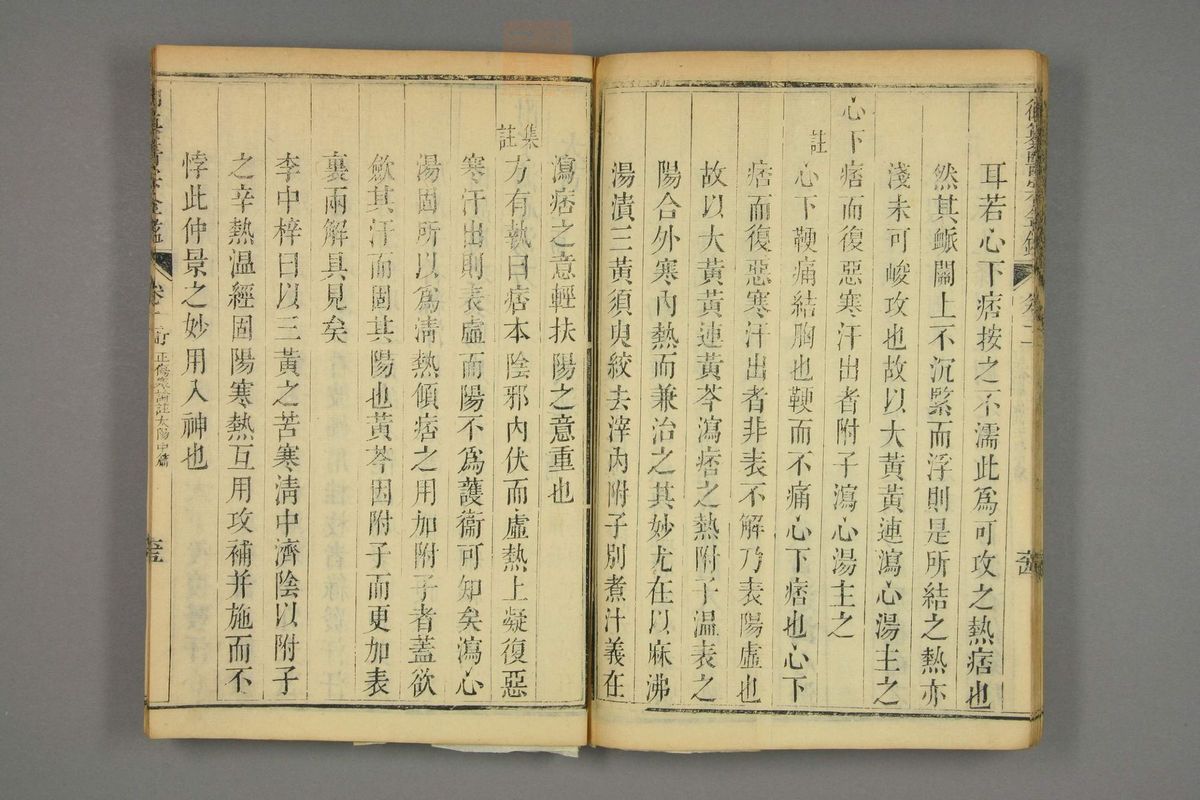 耳若心下痞按之不濡此爲可攻之熱痞也
然其脈關上不沉緊而浮則是所結之熱亦
淺未可峻攻也故以大黃黃連瀉心湯主之
心下痞而復惡寒汗出者附子瀉心湯主之
註
心下鞕痛結胸也鞕而不痛心下痞也心下
痞而復惡寒汗出者非表不解乃表陽虛也
故以大黃黃連黃芩瀉痞之熱附子温表之
陽合外寒内熱而兼治之其妙尤在以麻沸
湯漬三黃須臾絞去滓内附子别煮汁義在
瀉痞之意輕扶陽之意重也
集註
方有執曰痞本陰邪内伏而虛熱上凝復惡
寒汗出則表虛而陽不爲護衞可知矣瀉心
湯固所以爲淸熱傾痞之用加附子者蓋欲
歛其汗而固其陽也黃芩因附子而更加表
裏兩解具見矣
李中梓曰以三黃之苦寒淸中濟陰以附子
之辛熱温經固陽寒熱互用攻補并施而不
悖此仲景之妙用入神也
訂正傷寒論註太陽中篇